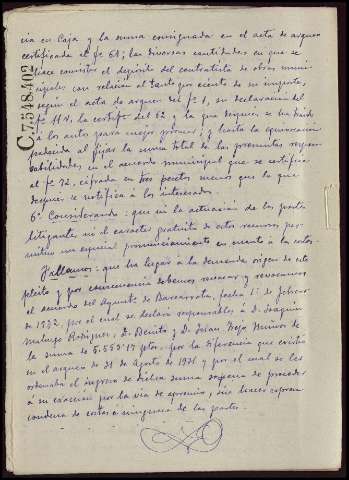 cia en Caja y la suma consignada en el acta de arqueo
certificada al fº 61; las diversas cantidades en que se
hace consistir el depósito del contratista de obras muni-
cipales con relación al tanto por ciento de su importe,
según el acta de arqueo del fº 1, su declaración del
fº 114, la certifº del 62 y la que después se ha traido
á los autos para mejor proveer; y hasta la equivocación
padecida al fijar la suma total de las presuntas respon-
sabilidades en el acuerdo municipal que se certifica
al fº 72, cifrada en tres pesetas menos que lo que
después se notifica á los interesados.
6º Considerando: que ni la actuación de las partes
litigantes ni el carácter gratuito de estos recursos per-
miten un especial pronunciamiento en cuanto á las costas.
Fallamos: que ha lugar á la demanda origen de este
pleito y por consecuencia debemos revocar y revocamos
el acuerdo del Ayuntº de Barcarrota, fecha 1º de febrero
de 1932, por el cual se declaró responsables á D. Joaquín
Rodríguez, D. Benito y D. Juan
la suma de 5.553'17 ptas. por la diferencia que existía
en el arqueo de 31 de Agosto de 1931 y por el cual se les
ordenaba el ingreso de dicha suma so pena de proceder
á su exacción por la vía de apremio; sin hacer expresa
condena de costas á ninguna de las partes.
C.7.548.402